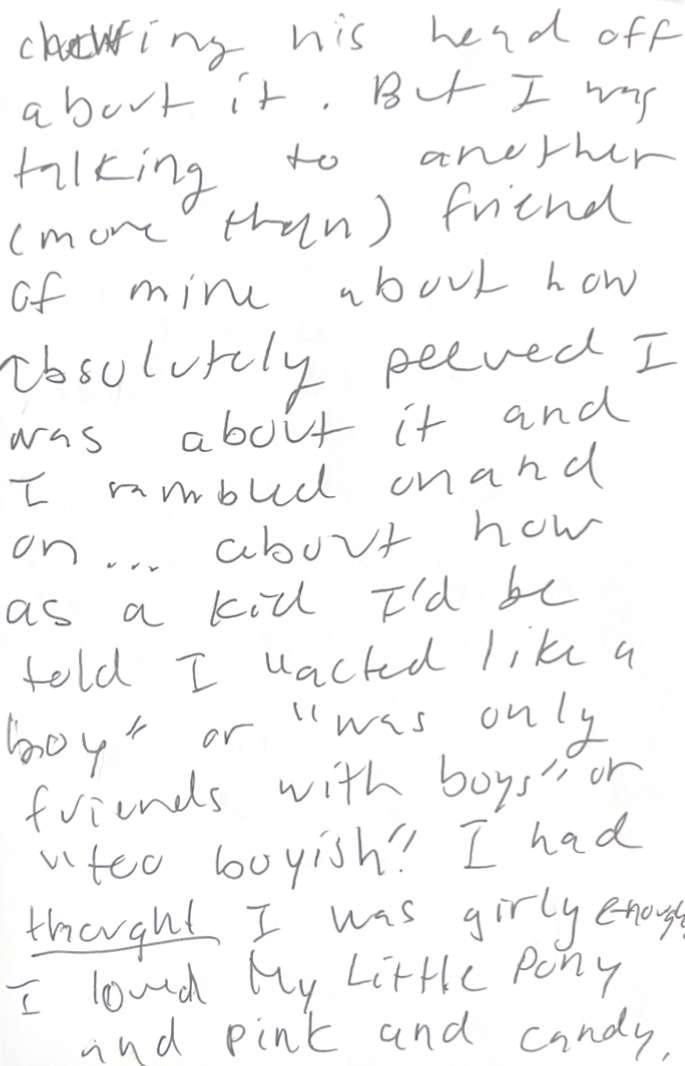 chewing his head off
about it. But I was
talking to another
(more than) friend
of mine about how
absolutely peeved I
was about it and
I rambled on and
on... about how
as a kid I'd be
told I "acted like a
boy" or "was only
friends with boys" or
"too boyish". I had
thought I was girly enough,
I loved My Little Pony
and pink and candy,